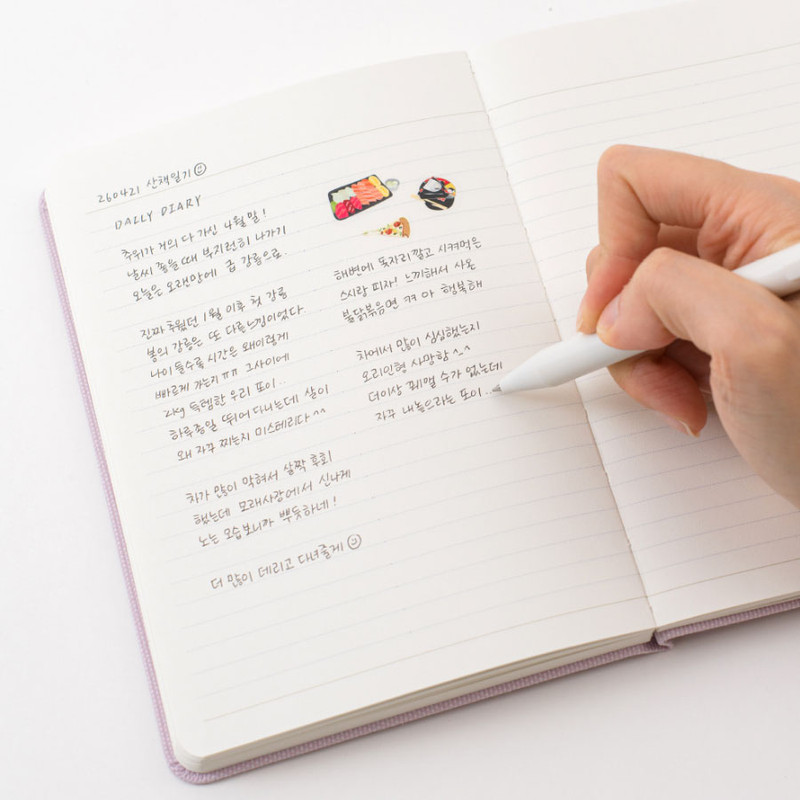 260421 산책일기
DAILY DIARY
추위가 거의 다 가신 4월말!
날씨 좋을때 부지런히 나가기
오늘은 오랜만에 급 강릉으로.
진짜 추웠던 1월 이후 첫 강릉
봄의 강릉은 또 다른느낌이었다
나이 들수록 시간은 왜이렇게
빠르게 가는지 ㅠㅠ 그사이에
2kg 득템한 우리 또이..
하루종일 뛰어다니는데 살이
왜 자꾸 찌는지 미스테리다 ^^
차가 많이 막혀서 살짝 후회
했는데 모래사장에서 신나게
노는 모습보니까 뿌듯하네!
더 많이 데리고 다녀줄게
해변에 돗자리깔고 시켜먹은
스시랑 피자! 느끼해서 사온
불닭볶음면 ㅋㅋ 아 행복해
차에서 많이 심심했는지
오리인형 사망함 ^_^
더이상 꿰맬 수가 없는데
자꾸 내놓으라는 또이..